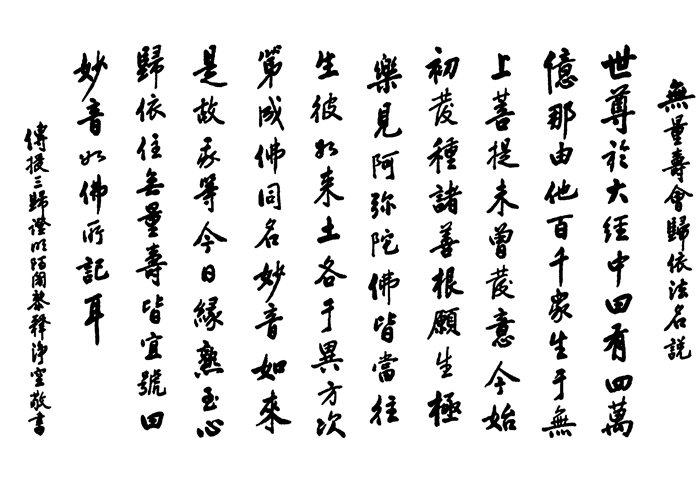 無量壽會歸依法名説
世尊於大經中曰有四萬
億那由他百千众生于無
上菩提未曾發意今始
初發種諸善根願生極
樂見阿弥陀佛皆當往
生彼如来土各于異方次
第成佛同名妙音如來
是故我等今日緣熟至心
歸依住無量壽皆宜號曰
妙音如佛所記耳
傳授三歸證明阿闍黎釋淨空敬書